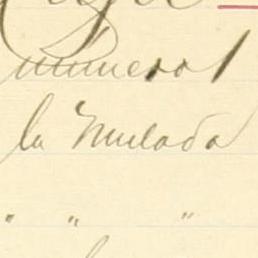 numero 1
la Mulada
" " "